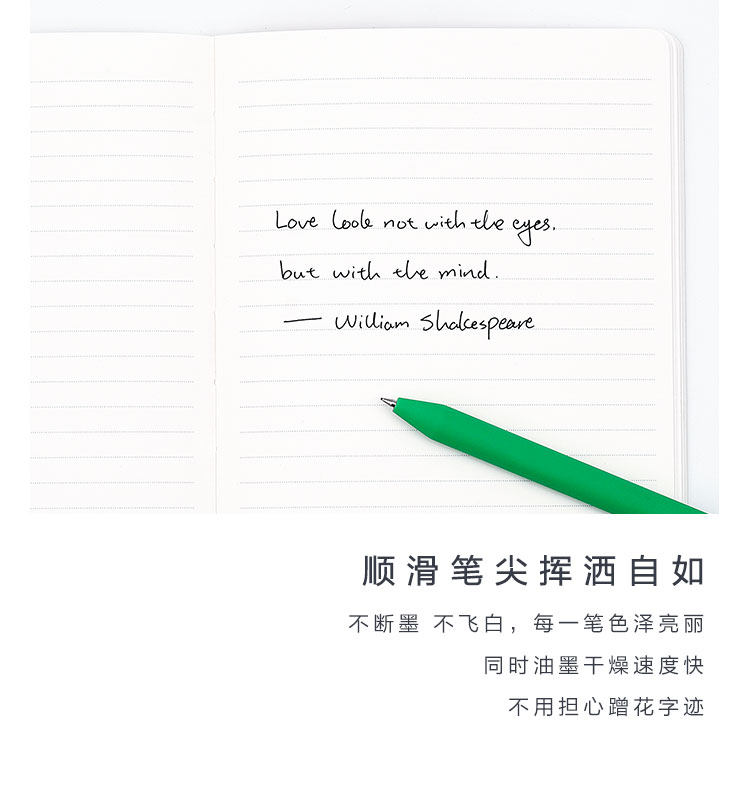 Love look not with the eyes,
but with the mind.
— William Shakespeare
顺滑笔尖挥洒自如
不断墨 不飞白，每一笔色泽亮丽
同时油墨干燥速度快
不用担心蹭花字迹